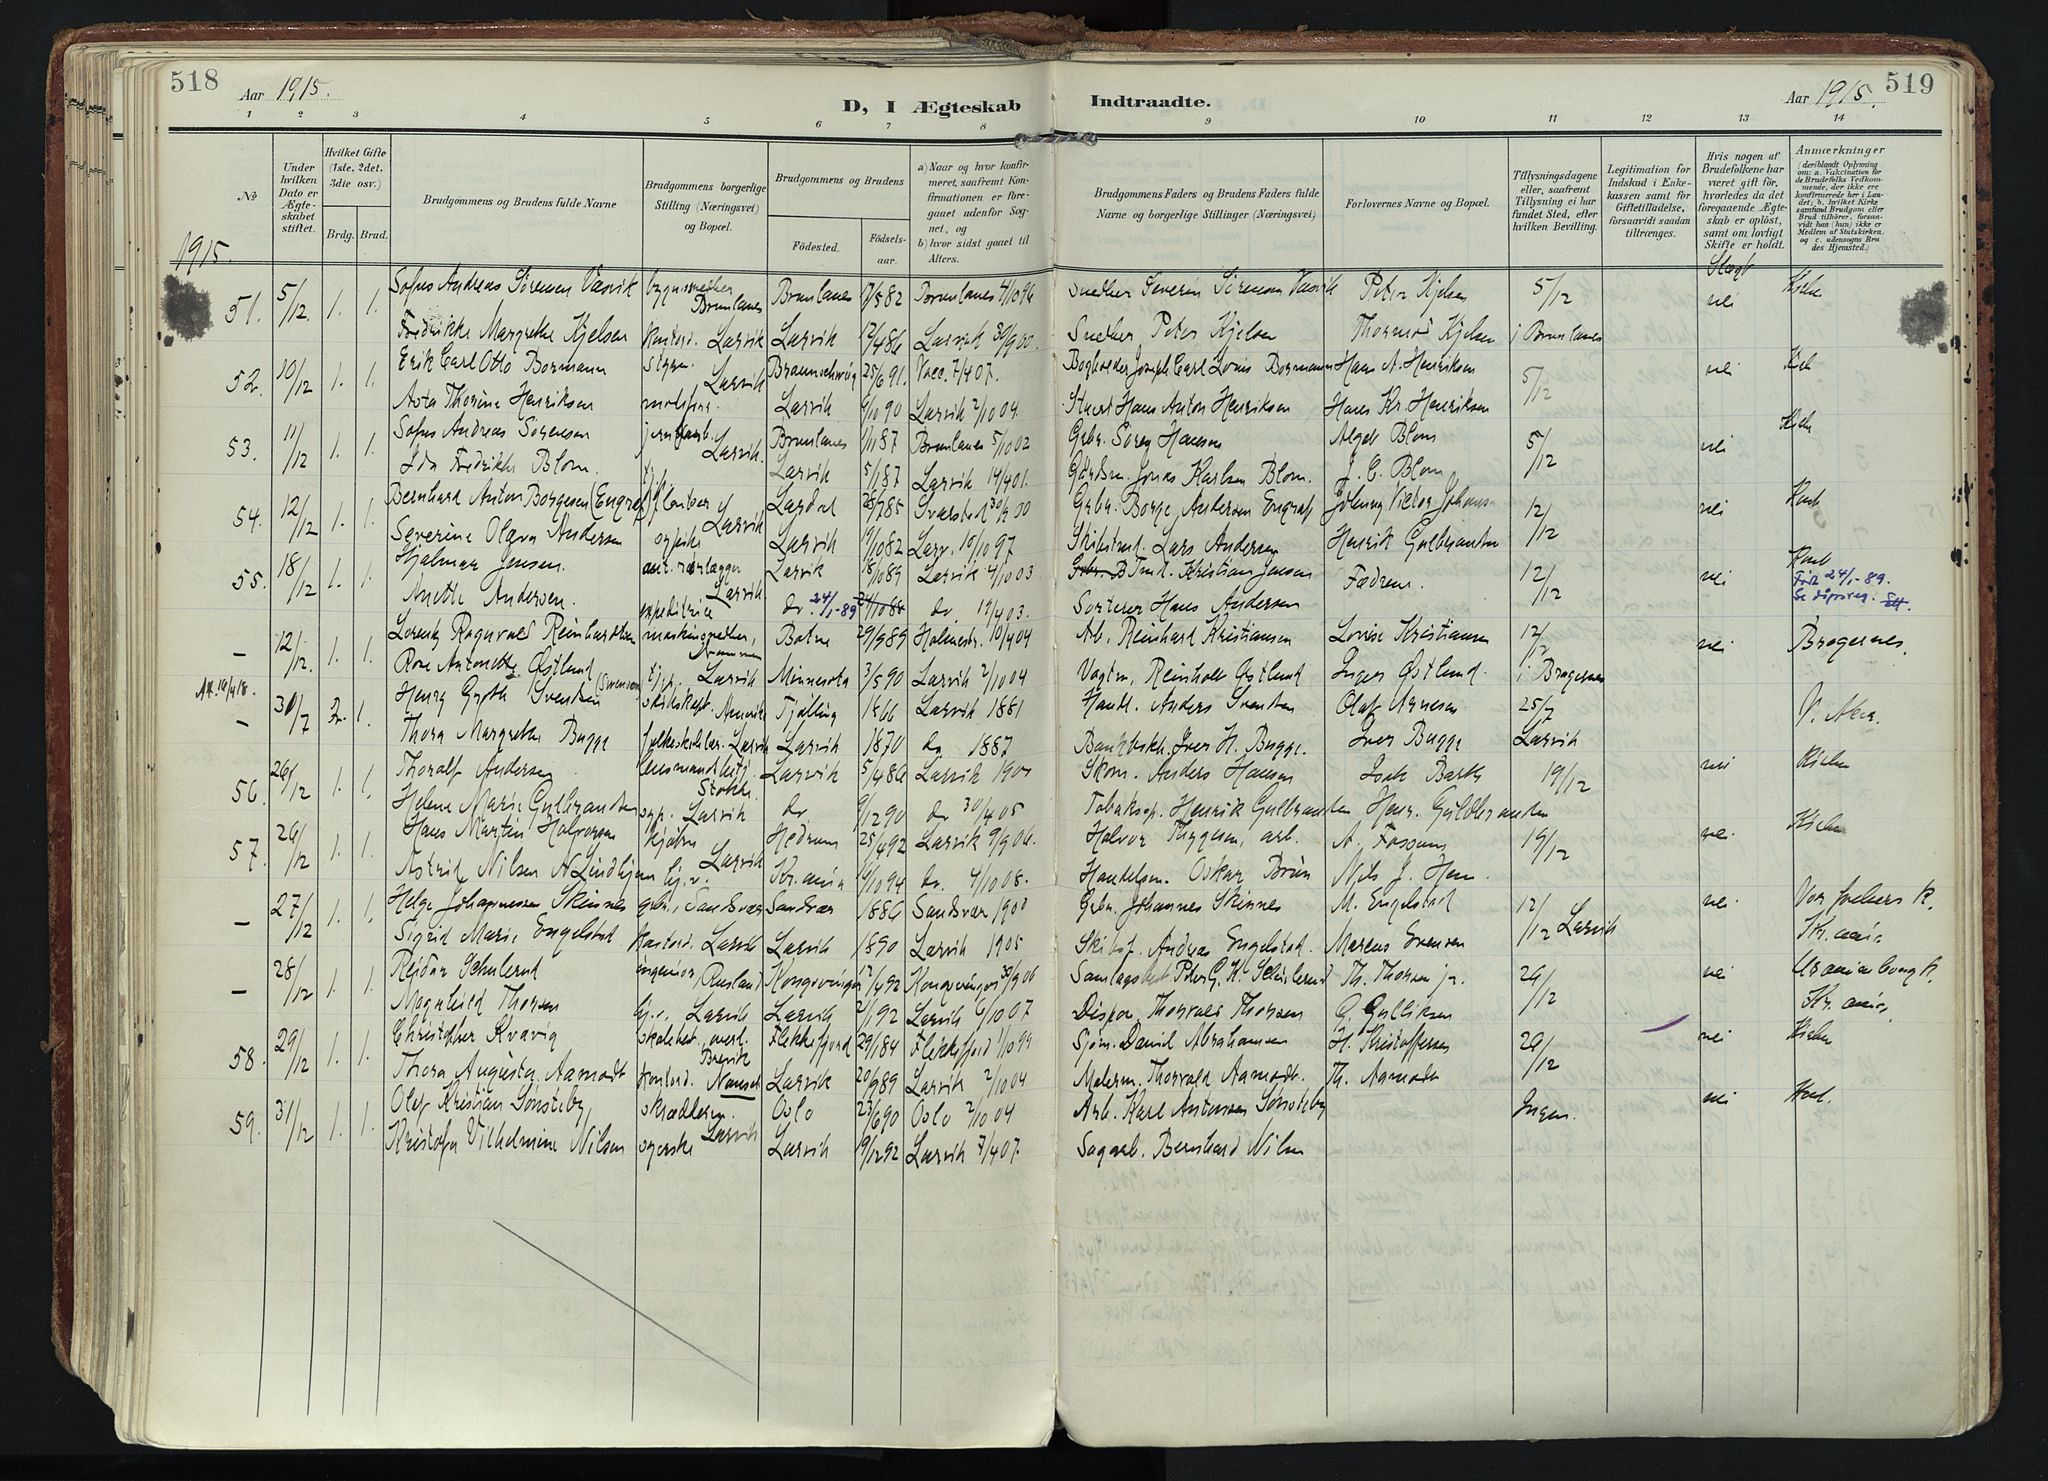 518
Aar 1915.
D, I Ægteskab
Indtraadte.
Aar 1915.
519
1 2 3 4 5 6 7 8 9 10 11 12 13 14
No
Under hvilken Dato er Ægteskabet stiftet.
Hvilket Gifte (1ste, 2det, 3die osv.)
Brdg. Brud.
Brudgommens og Brudens fulde Navne
Brudgommens borgerlige Stilling (Næringsvei) og Bopæl.
Brudgommens og Brudens
Fødested.
Fødsels-aar.
a) Naar og hvor konfirmeret, saafremt Konfirmationen er foregaaet udenfor Sognet, og
b) hvor sidst gaaet til Alters.
Brudgommens Faders og Brudens Faders fulde Navne og borgerlige Stillinger (Næringsvei)
Forlovernes Navne og Bopæl.
Tillysningsdagene eller, saafremt Tillysning ei har fundet Sted, efter hvilken Bevilling.
Legitimation for Indskud i Enkekassen samt for Giftetilladelse, forsaavidt saadan tiltrænges.
Hvis nogen af Brudefolkene har været gift før, hvorledes da det foregaaende Ægteskab er opløst, samt om lovligt Skifte er holdt.
Anmærkninger
(deriblandt Oplysning om: a. Vaccination for de Brudefolks Vedkommende, der ikke ere konfirmerede her i Landet; b. hvilket Kirkesamfund Brudgom eller Brud tilhører, forsaavidt han (hun) ikke er Medlem af Statskirken, og c. udensogns Brudes Hjemsted.)
1915.
51. 5/12 1. 1. Sofus Andreas Sørensen Vasvik Brunlanes Brunlanes 17/5 82 Brunlanes 4/10 96 Smedker Severin Sörensen Vasvik Peter Kjelsen 5/12 nei Kirke
Fredrikke Margrethe Kjelsen kontord. Larvik Larvik 12/4 86 Larvik 30/9 00. Peter Kjelsen Thormod Kjelsen i Brunlanes
52. 10/12 1. 1. Erik Carl Otto Bormann Larvik Braunschweig 25/6 91. Vacc. 7/4 07. Bogholder Joseph Carl Louis Bormann Hans A. Henriksen 5/12 nei Kirk
Asta Thorine Henriksen Larvik 6/10 90 Larvik 2/10 04. Stuert Hans Anton Henriksen Hans Kr. Henriksen
53. 11/12 1. 1. Sofus Andreas Sørensen jernbarb. Larvik. Brunlanes 11/1 87 Brunlanes 5/10 02 Grbr. Soren Hansen Alget Blom 5/12 nei Kirke
Ida Fredrikke Blom. Larvik 5/1 87 Larvik 14/4 01. Gårdm. Jonas Karlsen Blom. J. C. Blom
54. 12/12 1. 1. Bernhard Anton Borgesen (Engraf) Larvik Lardal 28/7 85 Svarstad 30/9 00 Grbr. Borge Andersen Engraf Johnny Viktor Johans- 12/12 nei Kont
Severine Olava Andersen sypike Larvik 19/10 82 Larv. 10/10 97 Skibstmd. Lars Andersen Henrik Gulbrandsen
55. 18/12 1. 1. Hjalmar Jensen. Larvik Larvik 18/10 89 Larvik 4/10 03 Kristian Jensen Fædrene. 12/12 nei Kont
Anette Andersen. expeditrice do. 24/1-89 do. 19/4 03. Sorterer Hans Andersen Född 24/1-89.
Se dåpsreg.
— 12/12. 1. 1. Lorentz Ragnvald Reinhardtsen maskinsmedker, Drammen Botne 29/9 89 Holmestr. 10/4 04 Arb. Reinhard Kristiansen Lovise Kristiansen 12/12 nei Bragernes.
Rosa Antonette Østlund tjp. Larvik Minnesota 3/5 90 Larvik 2/10 04 Vagtm. Reinholt Østlund Inger Østlund. i Bragernes
Att. 10/4 18.
— 30/7 2. 1. Henry Gyth Svendsen (Swensen skibskapt. Amerika Tjølling 1866 Larvik 1881 Handl. Anders Svendsen Olaf Arnesen 25/7 V. Aker.
Thora Margrethe Bugge folkeskolelær. Larvik Larvik 1870 do 1887 Bankbokh. Iver H. Bugge. Iver Bugge Larvik
56. 26/12 1. 1. Thoralf Andersen lensmandsbetj. Stokke. Larvik 5/4 86 Larvik 1900 Skom. Anders Hansen Isak Barth 19/12 nei Kirke
Helene Marie Gulbrandsen exp. Larvik do 9/12 90 do 30/4 05 Tobaksop. Henrik Gulbrandsen Henr. Guldbrandsen
57. 26/12 1. 1. Hans Martin Halvorsen Larvik Hedrum 25/4 92 Larvik 9/9 06. Halvor Thygesen, arb. A. Fossum 19/12 nei. Kirke
Astrid Nilsen N. Lindhjem hj.v. Kr.ania 4/10 94 do. 4/10 08. Handelsm. Oskar Brun Nils J. Hem
— 27/12 1. 1. Helge Johannessen Skinnes grbr., Sandsvær Sandsvær 1886 Sandsvær 1900 Grbr. Johannes Skinnes M. Engelstad 12/12 Larvik nei. Vor frelsers k.
Sigrid Marie Engelstad kontord. Larvik Larvik 1890 Larvik 1905 Skibsf. Andreas Engelstad. Marcus Evensen Kr.ania.
— 28/12 1. 1. Reidar Schulerud ingeniør, Rusland Kongsvinger 17/4 92 Kongsvinger 30/9 06 Samlagsbest. Peter G. K. Schulerud Th. Thorsen jr. 26/12 nei Uranienborg k.
Magnhild Thorsen hj.v. Larvik Larvik 2/1 92 Larvik 6/10 07 Dispon. Thorvald Thorsen O. Gulliksen Kr.ania.
58. 29/12 1. 1. Christopher Kvavig skolebest. overl. Brevik Flekkefjord 29/1 84 Flekkefjord 1/10 99 Sjøm. David Abrahamsen H. Kristoffersen 26/12 nei Kirke
Thora Augusta Aamodt kontord. Nanset Larvik 20/9 89 Larvik 2/10 04 Malerm. Thorvald Aamodt. Th. Aamodt
59. 31/12 1. 1. Olaf Kristian Sønsteby, skrædderm. Larvik Oslo 23/6 90 Oslo 2/10 04 Arb. Karl Antonsen Sønsteby Ingen. nei Kont.
Kristofa Vilhelmine Nilsen syerske Larvik 9/12 92 Larvik 7/4 07. Sagarb. Bernhard Nilsen